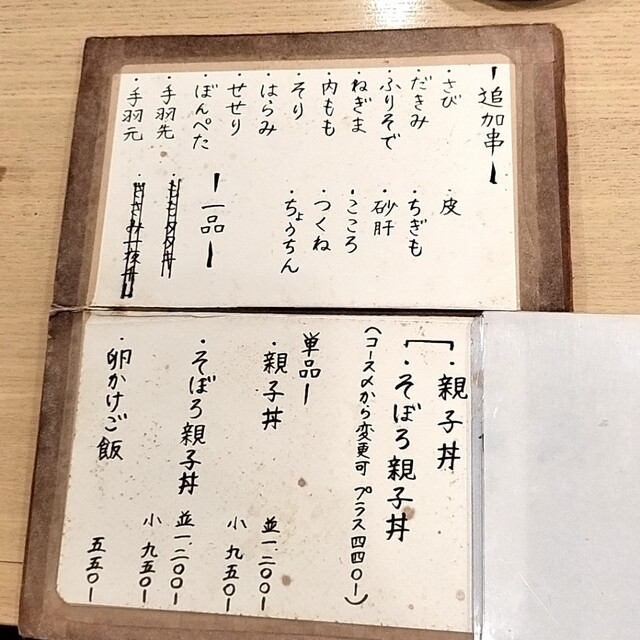 追加串
・さび
・だきみ
・ふりそで
・ねぎま
・内もも
・そり
・はらみ
・せせり
・ぼんぺた
・手羽先
・手羽元
・皮
・ちぎも
・砂肝
・こころ
・つくね
・ちょうちん
一品
・親子丼
・そぼろ親子丼
(コース〆から変更可 プラス四四〇-)
単品-
・親子丼
並一、二〇〇-
小 九五〇-
・そぼろ親子丼
並一、二〇〇-
小 九五〇-
・卵かけご飯
五五〇-